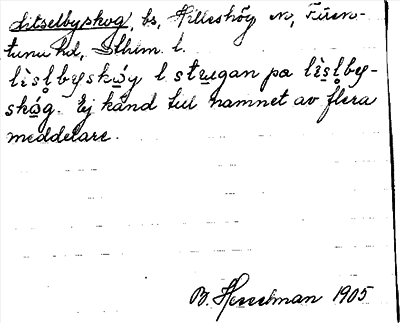 Sitselbyskog, bs, Hilleshög sn, Fären-
tuna hd, Sthlm. l.
lìsl̥byskὼg l stugan pa lìsl̥by-
skὼg. Ej känd till namnet av flera
meddelare.
B. Hesselman 1905